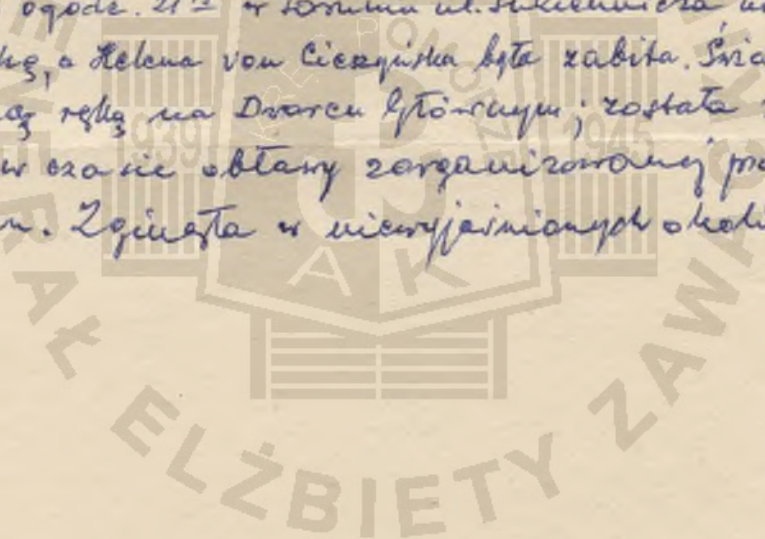 o godz. 21 w Toruniu ul. Sienkiewicza
kę, a Helena von Cieczyńska była zabita.
ręką na Dworcu Głównym; została
w czasie obławy zorganizowanej
Zginęła w niewyjaśnionych okoli
1939 1945
AK
ELŻBIETY ZAWAC